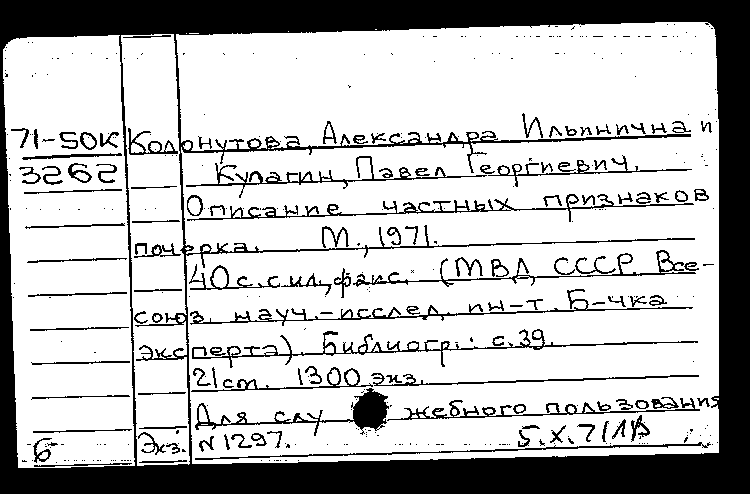 71-50К Колонутова, Александра Ильинична и
3262 Кулагин, Павел Георгиевич.
Описание частных признаков
почерка. М., 1971.
40 с. с ил., факс. (МВД СССР. Все-
союз. науч.-исслед. ин-т. Б-чка
эксперта). Библиогр.: с. 39.
21 cm. 1300 экз.
Для служебного пользования
Б Экз. N 1297. 5.X.71